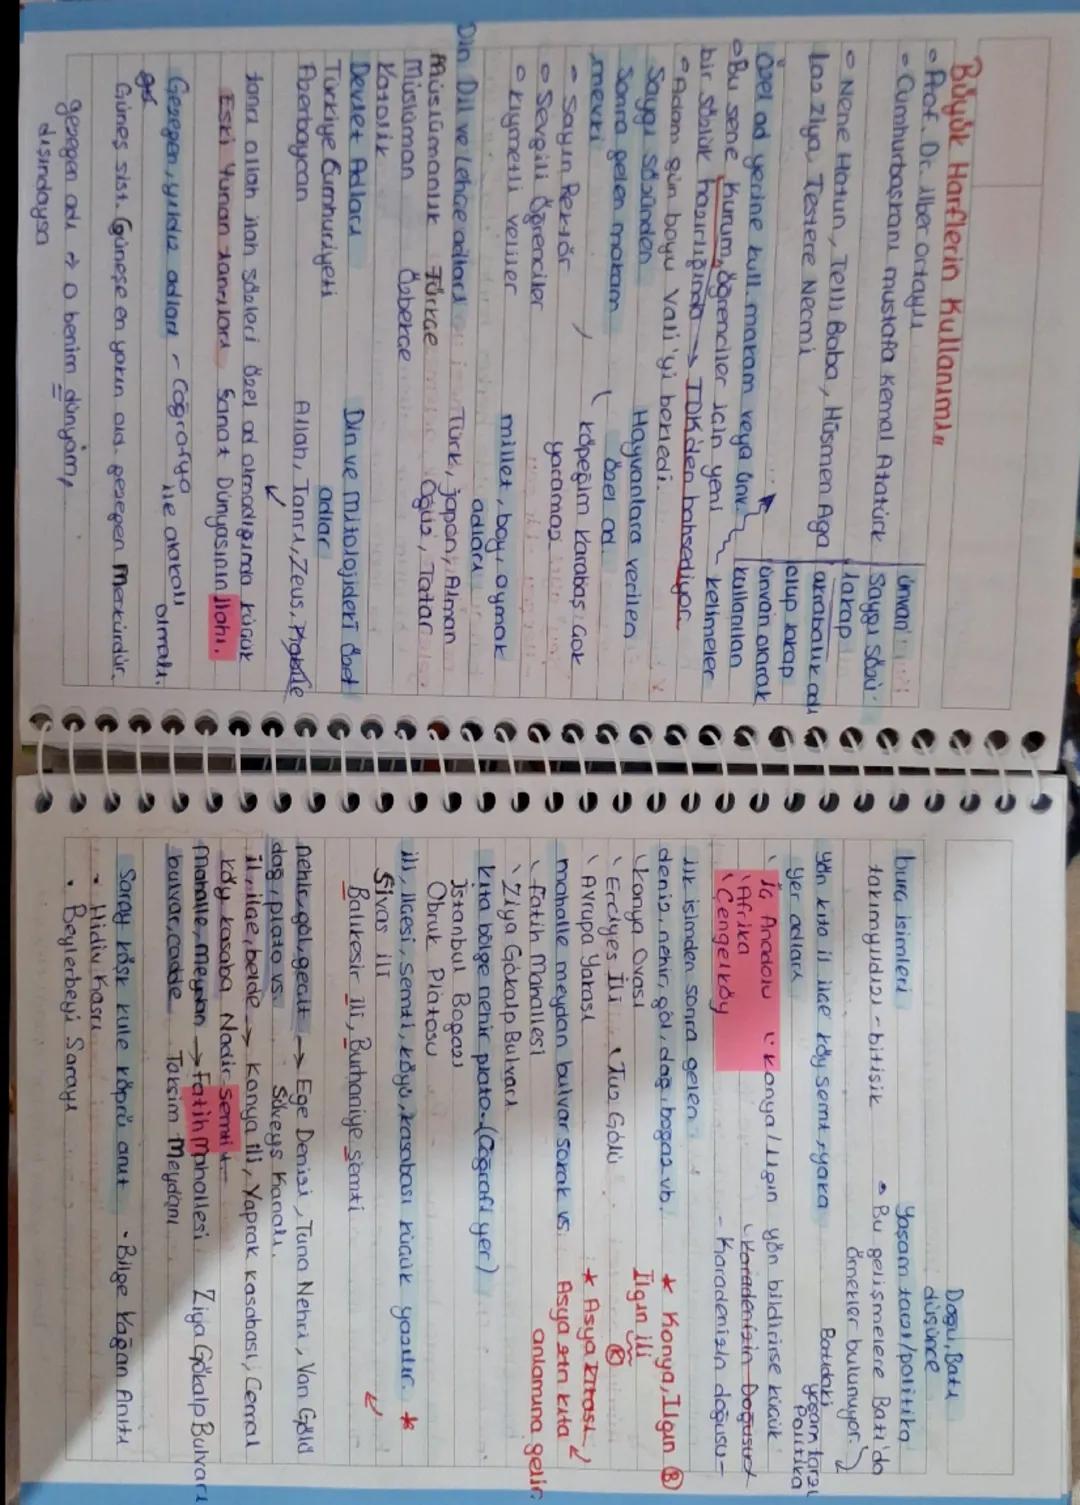 "Büyük Harflerin Kullanımı"
• Prof. Dr. ilber ortaylı
ünvan
• Cumhurbaşkanı mustafa kemal Atatürk
Saygı sözü
• Nene Hatun, Telli Baba, Hüsmen Aga
lakap
Laz Ziya, Testere Necmi
akrabalık adı
olup lakap
ünvan olarak
kullanılan
kelimeler
Özel ad yerine kull. makam veya ünv.
• Bu sene Kurum, öğrenciler için yeni
bir sözlük hazırlığında → TDK'den bahsediyor.
• Adam gün boyu Vali'yi bekledi.
Saygı sözünden
sonra gelen makam
mevki
- Sayın Rektör
• Sevgili Öğrenciler
• Kıymetli veliler
Hayvanlara verilen
özel ad.
köpeğim Karabaş çok
yaramaz
Din Dil ve Lehçe adları
müslümanlık Türkçe
Müslüman Özbekçe
Katolik
millet, boy, oymak
adları
Türk, japon, Alman
Oğuz, Tatar
Devlet Adları
Türkiye Cumhuriyeti
Azerbaycan
Din ve mitolojideki özel
adlar
Allah, Tanrı, Zeus,
tanrı allah ilah sözleri özel ad olmadığında küçük
Eski Yunan tanrıları Sanat Dünyasının ilahı.
Gezegen, yıldız adları - Coğrafya
ile alakalı
olmalı.
Güneş sist. Güneşe en yakın olan gezegen Merkürdür.
gezegen adı → o benim dünyam,
dışındaysa
Doğu, Batı
düşünce
Yaşam tarzı/politika
• Bu gelişmelere Batı'da
örnekler bulunuyor.
Batıdaki
yaşam tarzı
politika
burç isimleri
takımyıldızı - bitişik
yön kıta il ilçe köy semt, yaka
yer adları
iç Anadolu
Afrika
Çengelköy
Konya / Ilgın
yön bildirirse küçük
Karadenizin Doğusu
- Karadenizin doğusu -
ilk isimden sonra gelen
deniz, nehir, göl, dağ, boğaz vb.
Konya Ovası
Erciyes İli
Tuz Gölü
Avrupa Yakası
* Konya, Ilgın (B)
Ilgın ili
(K)
* Asya kıtası
Asya ztn kıta
anlamına gelir.
mahalle meydan bulvar sokak vs.
Fatih Mahallesi
Ziya Gökalp Bulvarı
kıta bölge nehir plato.. (Coğrafi yer)
İstanbul Boğazı
Obruk Platosu
ili, ilçesi, semti, köyü, kasabası küçük yazılır. *
Sivas ili
Balıkesir ili, Burhaniye semti
nehir, göl, geçit → Ege Denizi, Tuna Nehri, Van Gölü
dağ, plato vs. Süveyş Kanalı.
il, ilçe, belde → Konya ili, Yaprak kasabası, Cemal
köy kasaba Nadir semti
mahalle, meydan → Fatih Mahallesi Ziya Gökalp Bulvarı
bulvar, cadde Taksim Meydanı
Saray köşk kule köprü anıt • Bilge Kağan Anıtı
• Hidiv Kasrı
• Beylerbeyi Sarayı